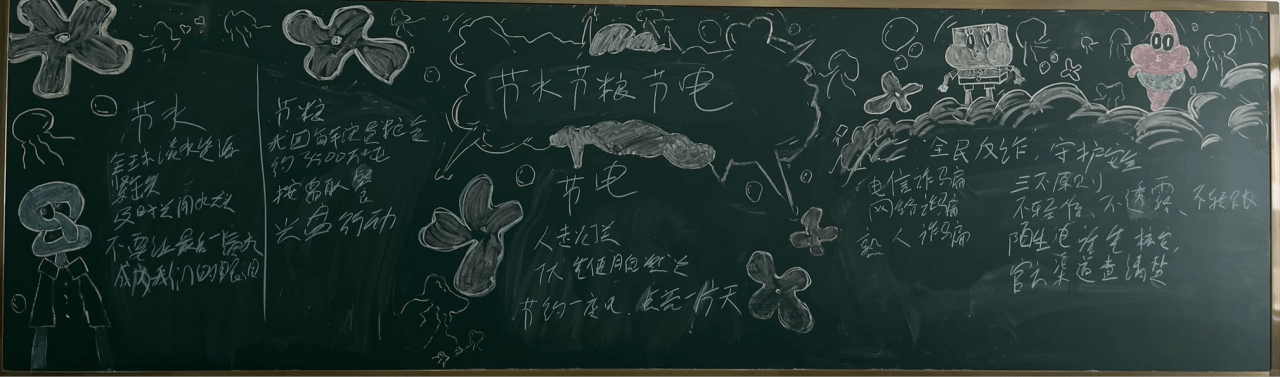 节水节粮节电
节水
全球淡水资源
紧缺
及时关闭水龙
不要让最后一滴水
成为我们的眼泪
节粮
我国每年浪费粮食
约3500万吨
按需取餐
光盘行动
节电
人走灯关
优先使用自然光
节约一度电,点亮一片天
全民反诈,守护安全
电信诈骗
网络诈骗
熟人诈骗
三不原则
不轻信、不透露、不转账
陌生电话先核实,
官方渠道查清楚